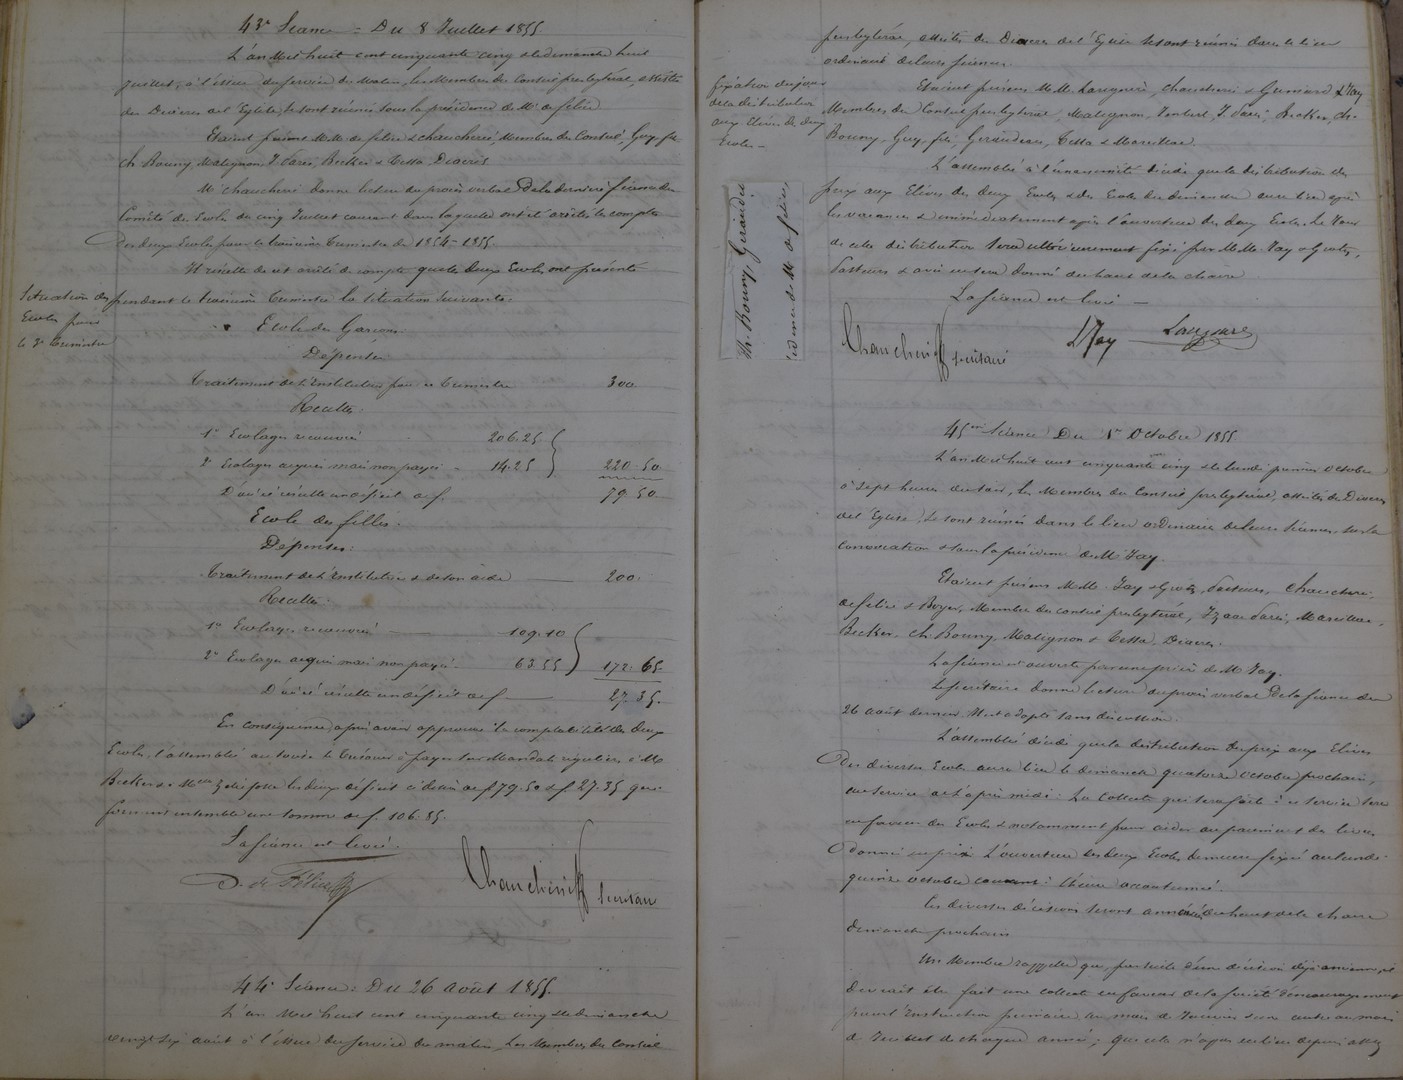 43e Séance = Du 8 Juillet 1855
L'an Mil huit cent cinquante cinq & le dimanche huit
Juillet, à l'issue du service du Matin, les Membres du Conseil presbytéral, assistés
des Diacres de l'Eglise, se sont réunis sous la présidence de Mr de félice
Etaient présens M.M. de felice & chaucherie, Membres du Conseil, Guy, fils
ch. Bouny, Matignon, J. Sarri, Becker & Cessa, Diacres
Mr chaucherie donne lecture du procès verbal de la dernière séance du
Comité des Ecoles du cinq Juillet courant dans laquelle ont été arrêtés les comptes
des deux Ecoles pour le troisième Trimestre de 1854-1855.
Il résulte de cet arrêté de compte que les deux Ecoles ont présenté
Situation des
Ecoles pour
le 3e trimestre
pendant le troisième trimestre la situation suivante.
Ecole des Garçons.
Dépense
Traitement de l'Instituteur pour ce Trimestre 300.
Recettes.
1° Ecolages recouvrés 206.25
2° Ecolages acquis mais non payés 14.25 220.50
D'où il résulte un déficit de f 79.50
Ecole des filles.
Dépenses:
Traitement de l'Institutrice & de son aide 200.
Recettes.
1° Ecolages recouvrés 109.10
2° Ecolages acquis mais non payés 63.55 172.65
D'où il résulte un déficit de f 27.35.
En conséquence, après avoir approuvé la comptabilité des deux
Ecoles, l'assemblée autorise le Trésorier à payer sur Mandats réguliers à Mr
Becker & à Mme les deux déficits ci dessus de f 79.50 & f 27.35 qui
forment ensemble une somme de f. 106.85.
La séance est levée.
D. de Félice
Chaucherie secrétaire
44e Séance: Du 26 août 1855.
L'an Mil huit cent cinquante cinq & le dimanche
vingt six août à l'issue du service du matin, les Membres du Conseil
presbytéral, assistés des Diacres de l'Eglise se sont réunis dans le lieu
ordinaire de leurs séances.
fixation du jour
de la distribution
aux Elèves des deux
Ecoles
Etaient présens M.M. Laugière, Chaucherie & Jay
Membres du Conseil presbytéral, Matignon, J. Sarri, Becker, ch.
Bouny, Guy, fils, Giraudier, Cessa & Marcillac
L'assemblée à l'unanimité décide que la distribution des
prix aux Elèves des deux Ecoles & des Ecoles du dimanche aura lieu après
les vacances & immédiatement après l'ouverture des deux Ecoles. Le Jour
de cette distribution sera ultérieurement fixé par M.M. Jay & Grotz,
Pasteurs & avis en sera donné du haut de la chaire
La séance est levée
Ch. Bouny, Giraudier
de Mr de félice,
Chaucherie secrétaire
Jay
45eme Séance Du 1er Octobre 1855
L'an Mil huit cent cinquante cinq & le lundi premier octobre
à Sept heures du soir, les Membres du Conseil presbytéral, assistés des Diacres
de l'Eglise, se sont réunis dans le lieu ordinaire de leurs séances, sur la
convocation & sous la présidence de Mr Jay.
Etaient présens M.M. Jay & Grotz, Pasteurs, Chaucherie,
de félice & Boyer, Membres du conseil presbytéral, Izaac Sarri, Marcillac,
Becker, ch. Bouny, Matignon & Cessa, Diacres.
La séance est ouverte par une prière de Mr Jay.
Le secrétaire donne lecture du procès verbal de la séance du
26 août dernier. Il est adopté sans discussion.
L'assemblée décide que la distribution des prix aux Elèves
des diverses Ecoles aura lieu le dimanche quatorze octobre prochain,
au service de l'après midi. La Collecte qui sera faite à ce service sera
en faveur des Ecoles & notamment pour aider au paiement des livres
donnés en prix. L'ouverture des deux Ecoles demeure fixée au lundi
quinze octobre courant à l'heure accoutumée.
Ces diverses décisions seront annoncées du haut de la chaire
dimanche prochain
Un Membre rappelle que, par suite d'une décision déjà ancienne, il
devrait être fait une collecte en faveur de la société d'encouragement
pour l'Instruction primaire au mois de Janvier & une autre au mois
de Juillet de chaque année; que cela n'a pas eu lieu depuis assez